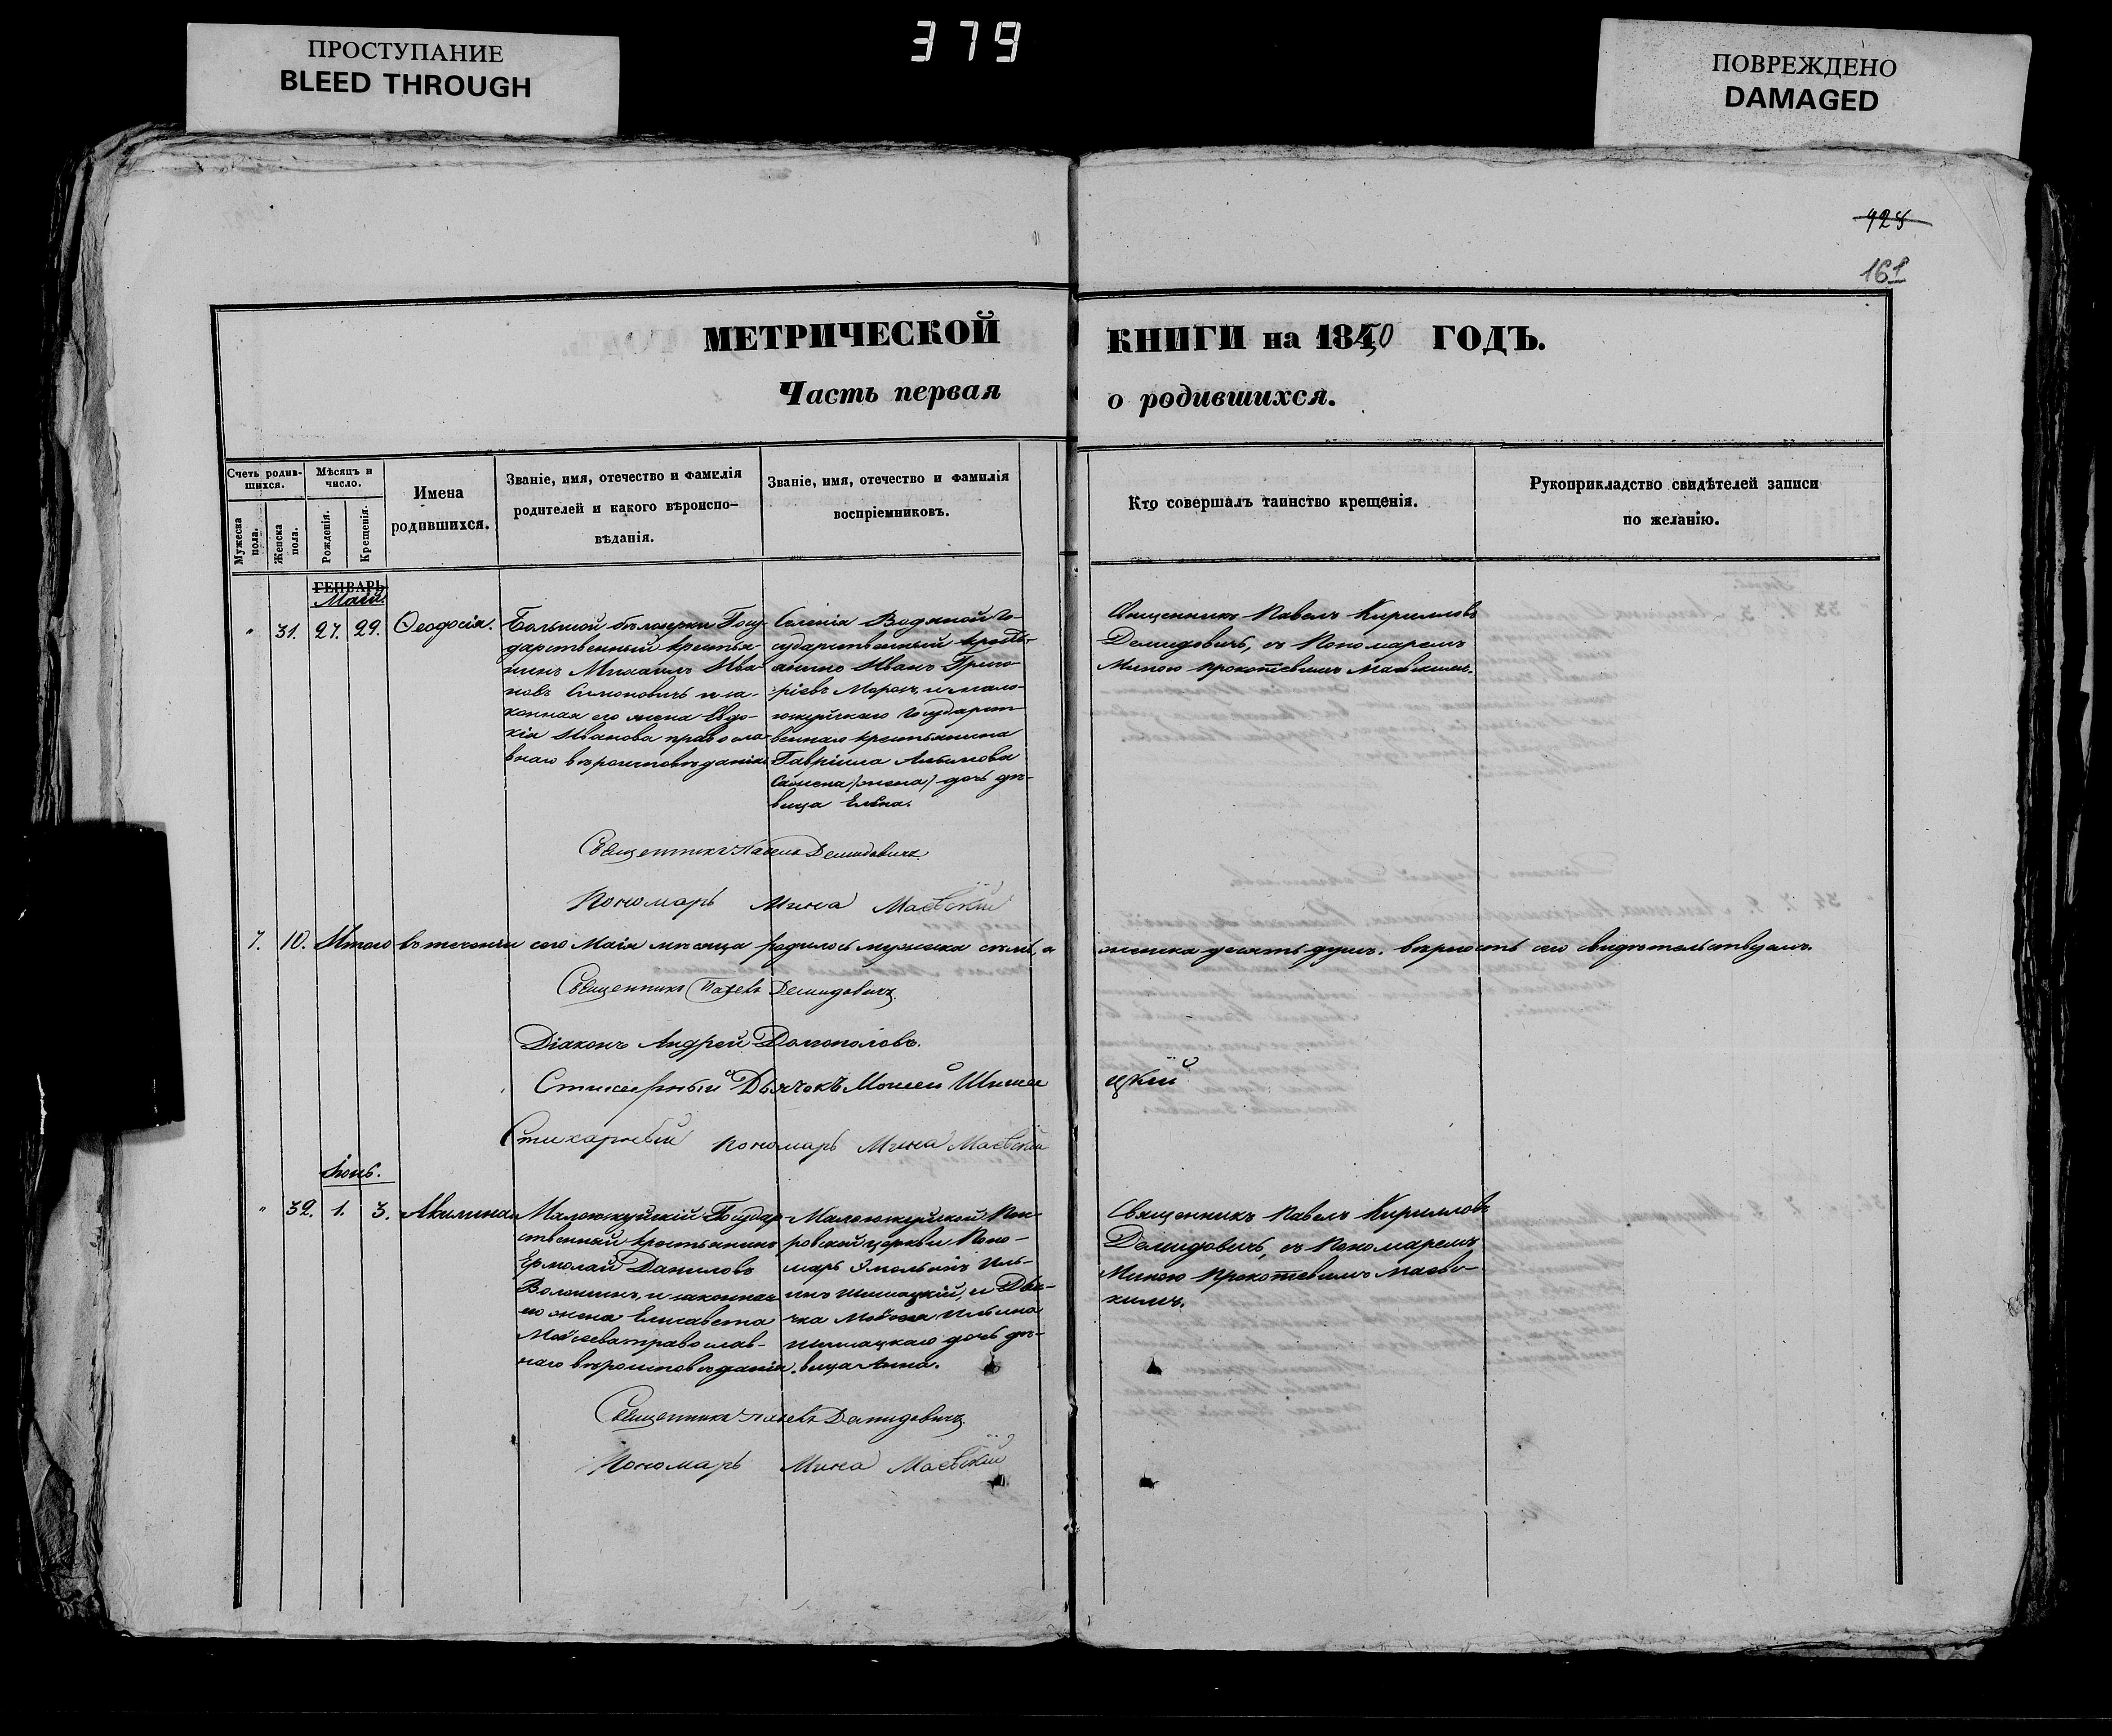 ПРОСТУПАНИЕ
BLEED THROUGH
379
ПОВРЕЖДЕНО
DAMAGED
928
161
МЕТРИЧЕСКОЙ КНИГИ на 1850 ГОДЪ.
Часть первая о родившихся.
Счетъ родив-
шихся.
Мужеска пола.
Женска пола.
Мѣсяцъ и
число.
Рожденія.
Крещенія.
Имена
родившихся.
Званіе, имя, отечество и фамилія
родителей и какого вѣроиспо-
вѣданія.
Званіе, имя, отечество и фамилія
воспріемниковъ.
Кто совершалъ таинство крещенія.
Рукоприкладство свидѣтелей записи
по желанію.
ГЕНВАРЬ
Маій.
" 31. 27. 29. Ѳеодосія.
Большой бѣлозерки Госу-
дарственный крестья-
нинъ Михаилъ Ива-
новъ Симоновичъ и за-
конная его жена Евдо-
кія Иванова правосла-
внаго вѣроисповѣданія.
Селенія Водяной Го-
сударственный кресть-
янинъ Иванъ Григо-
ріевъ Морозъ, и мало-
Государст-
веннаго крестьянина
Гавріила
дочь дѣ-
вица Елена.
Священникъ Павелъ Кирилловъ
Демидовичъ, съ Пономаремъ
Миною Прокопіевымъ Маевскимъ.
Священникъ Павелъ Демидовичъ
Пономарь Мина Маевскій
7. 10. Итого въ теченіи сего Маія мѣсяца родилось мужеска семь, а женска десять душъ. вѣрность сего свидѣтельствуемъ.
Священникъ Павелъ Демидовичъ
Діаконъ Андрей Долгополовъ.
Стихарный Дьячокъ Моисей Шишацкій
Стихарный пономарь Мина Маевскій
Іюнь.
" 32. 1. 3. Акилина
Государ-
ственный крестьянинъ
Ермолай Даниловъ
Волошинъ, и законная
его жена Елисавета
Моисеева православ-
наго вѣроисповѣданія.
Пок-
ровской церкви Поно-
марь Иль-
инъ Шишацкій, и Дья-
чка Моисея Ильина
Шишацкаго дочь дѣ-
вица Анна.
Священникъ Павелъ Кирилловъ
Демидовичъ, съ Пономаремъ
Миною Прокопіевымъ Маевс-
кимъ.
Священникъ Павелъ Демидовичъ
Пономарь Мина Маевскій